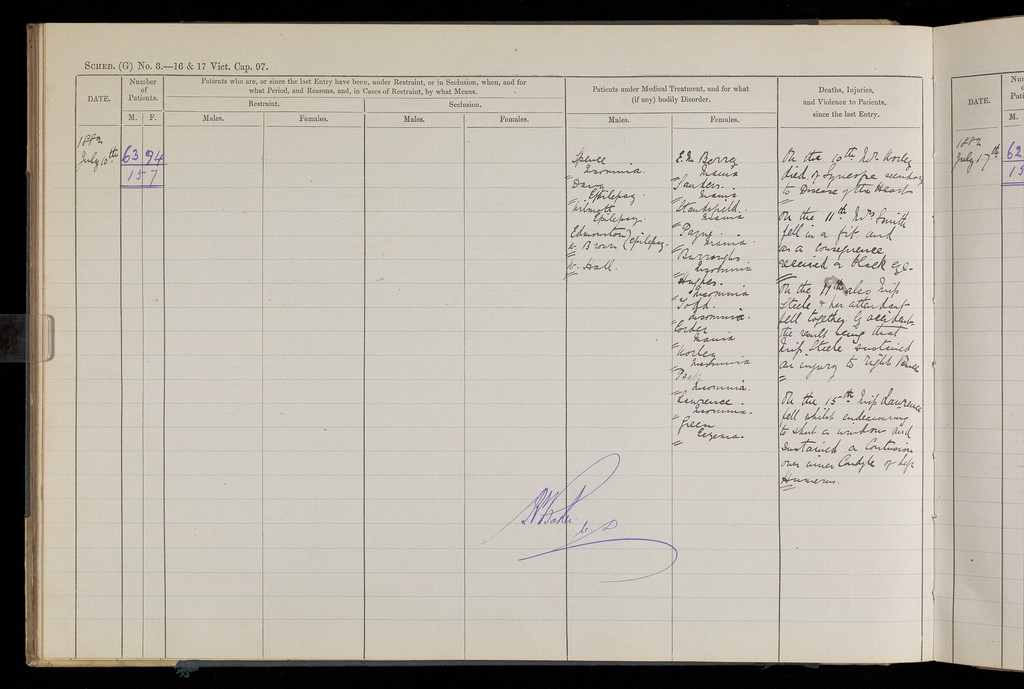 SCHED. (G) No. 3.—16 & 17 Vict. Cap. 97.
DATE.
Number
of
Patients.
M. F.
Patients who are, or since the last Entry have been, under Restraint, or in Seclusion, when, and for
what Period, and Reasons, and, in Cases of Restraint, by what Means.
Restraint.
Seclusion.
Males.
Females.
Males.
Females.
Patients under Medical Treatment, and for what
(if any) bodily Disorder.
Males.
Females.
Deaths, Injuries,
and Violence to Patients,
since the last Entry.
1882
July 10th
63 94
157
Spence
Insomnia.
Davy
Epilepsy
Wilmott
Epilepsy.
Edmonston
W. Brown (epilepsy.
W. Hall.
E. M. Berry
Mania
Sanders.
Mania
Stansfield.
Mania
Payne.
Mania.
Burroughs
Insomnia
Hughes.
Insomnia
Todd.
Insomnia.
Corder
Mania
Worley
Insomnia
Insomnia.
Lawrence.
Insomnia.
Green
Eczema.
On the 10th Mr. Worley
died of Syncope secondary
to Disease of the Heart
On the 11th Mrs Smith
fell in a fit and
as a consequence
received a black eye.
On the 11th also Miss
Steele & her attendant
fell together by accident
the result being that
Miss Steele sustained
an injury to right
On the 15th Miss Lawrence
fell whilst endeavouring
to shut a window and
sustained a Contusion
over inner Condyle of left
Humerus.
DATE.
M.
1882
July 17th
62
15